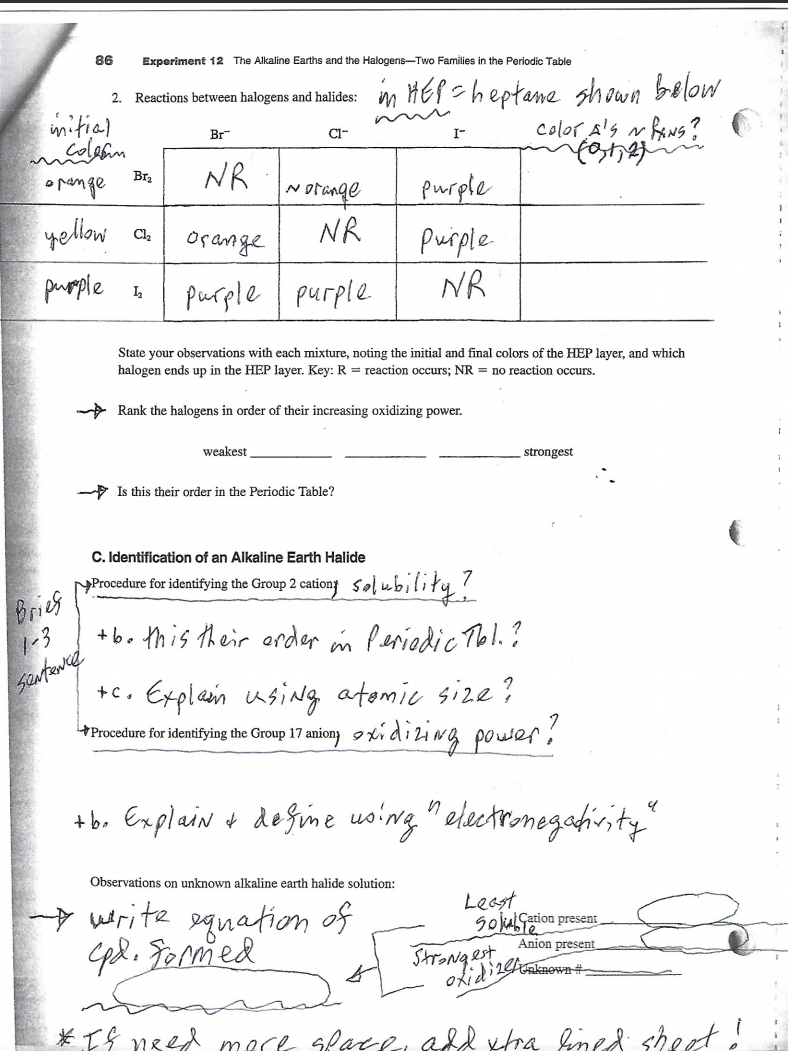 86 Experiment 12 The Alkaline Earths and the Halogens—Two Families in the Periodic Table
2. Reactions between halogens and halides: in HEP = heptane shown below
initial
Br⁻ Cl⁻ I⁻ color Δ's
(0,1,2)
orange Br₂ NR ~ orange purple
yellow Cl₂ orange NR Purple
purple I₂ purple purple NR
State your observations with each mixture, noting the initial and final colors of the HEP layer, and which
halogen ends up in the HEP layer. Key: R = reaction occurs; NR = no reaction occurs.
→ Rank the halogens in order of their increasing oxidizing power.
weakest ________ ________ ________ strongest
→ Is this their order in the Periodic Table?
C. Identification of an Alkaline Earth Halide
Procedure for identifying the Group 2 cation; solubility?
Brief
1-3
sentence
+b. this their order in Periodic Tbl.?
+c. Explain using atomic size?
Procedure for identifying the Group 17 anion; oxidizing power?
+b. Explain + define using "electronegativity"
Observations on unknown alkaline earth halide solution:
→ write equation of
cpd. formed
Least
soluble Cation present
Strongest Anion present
oxidizer Unknown #
* If need more space, add xtra lined sheet!